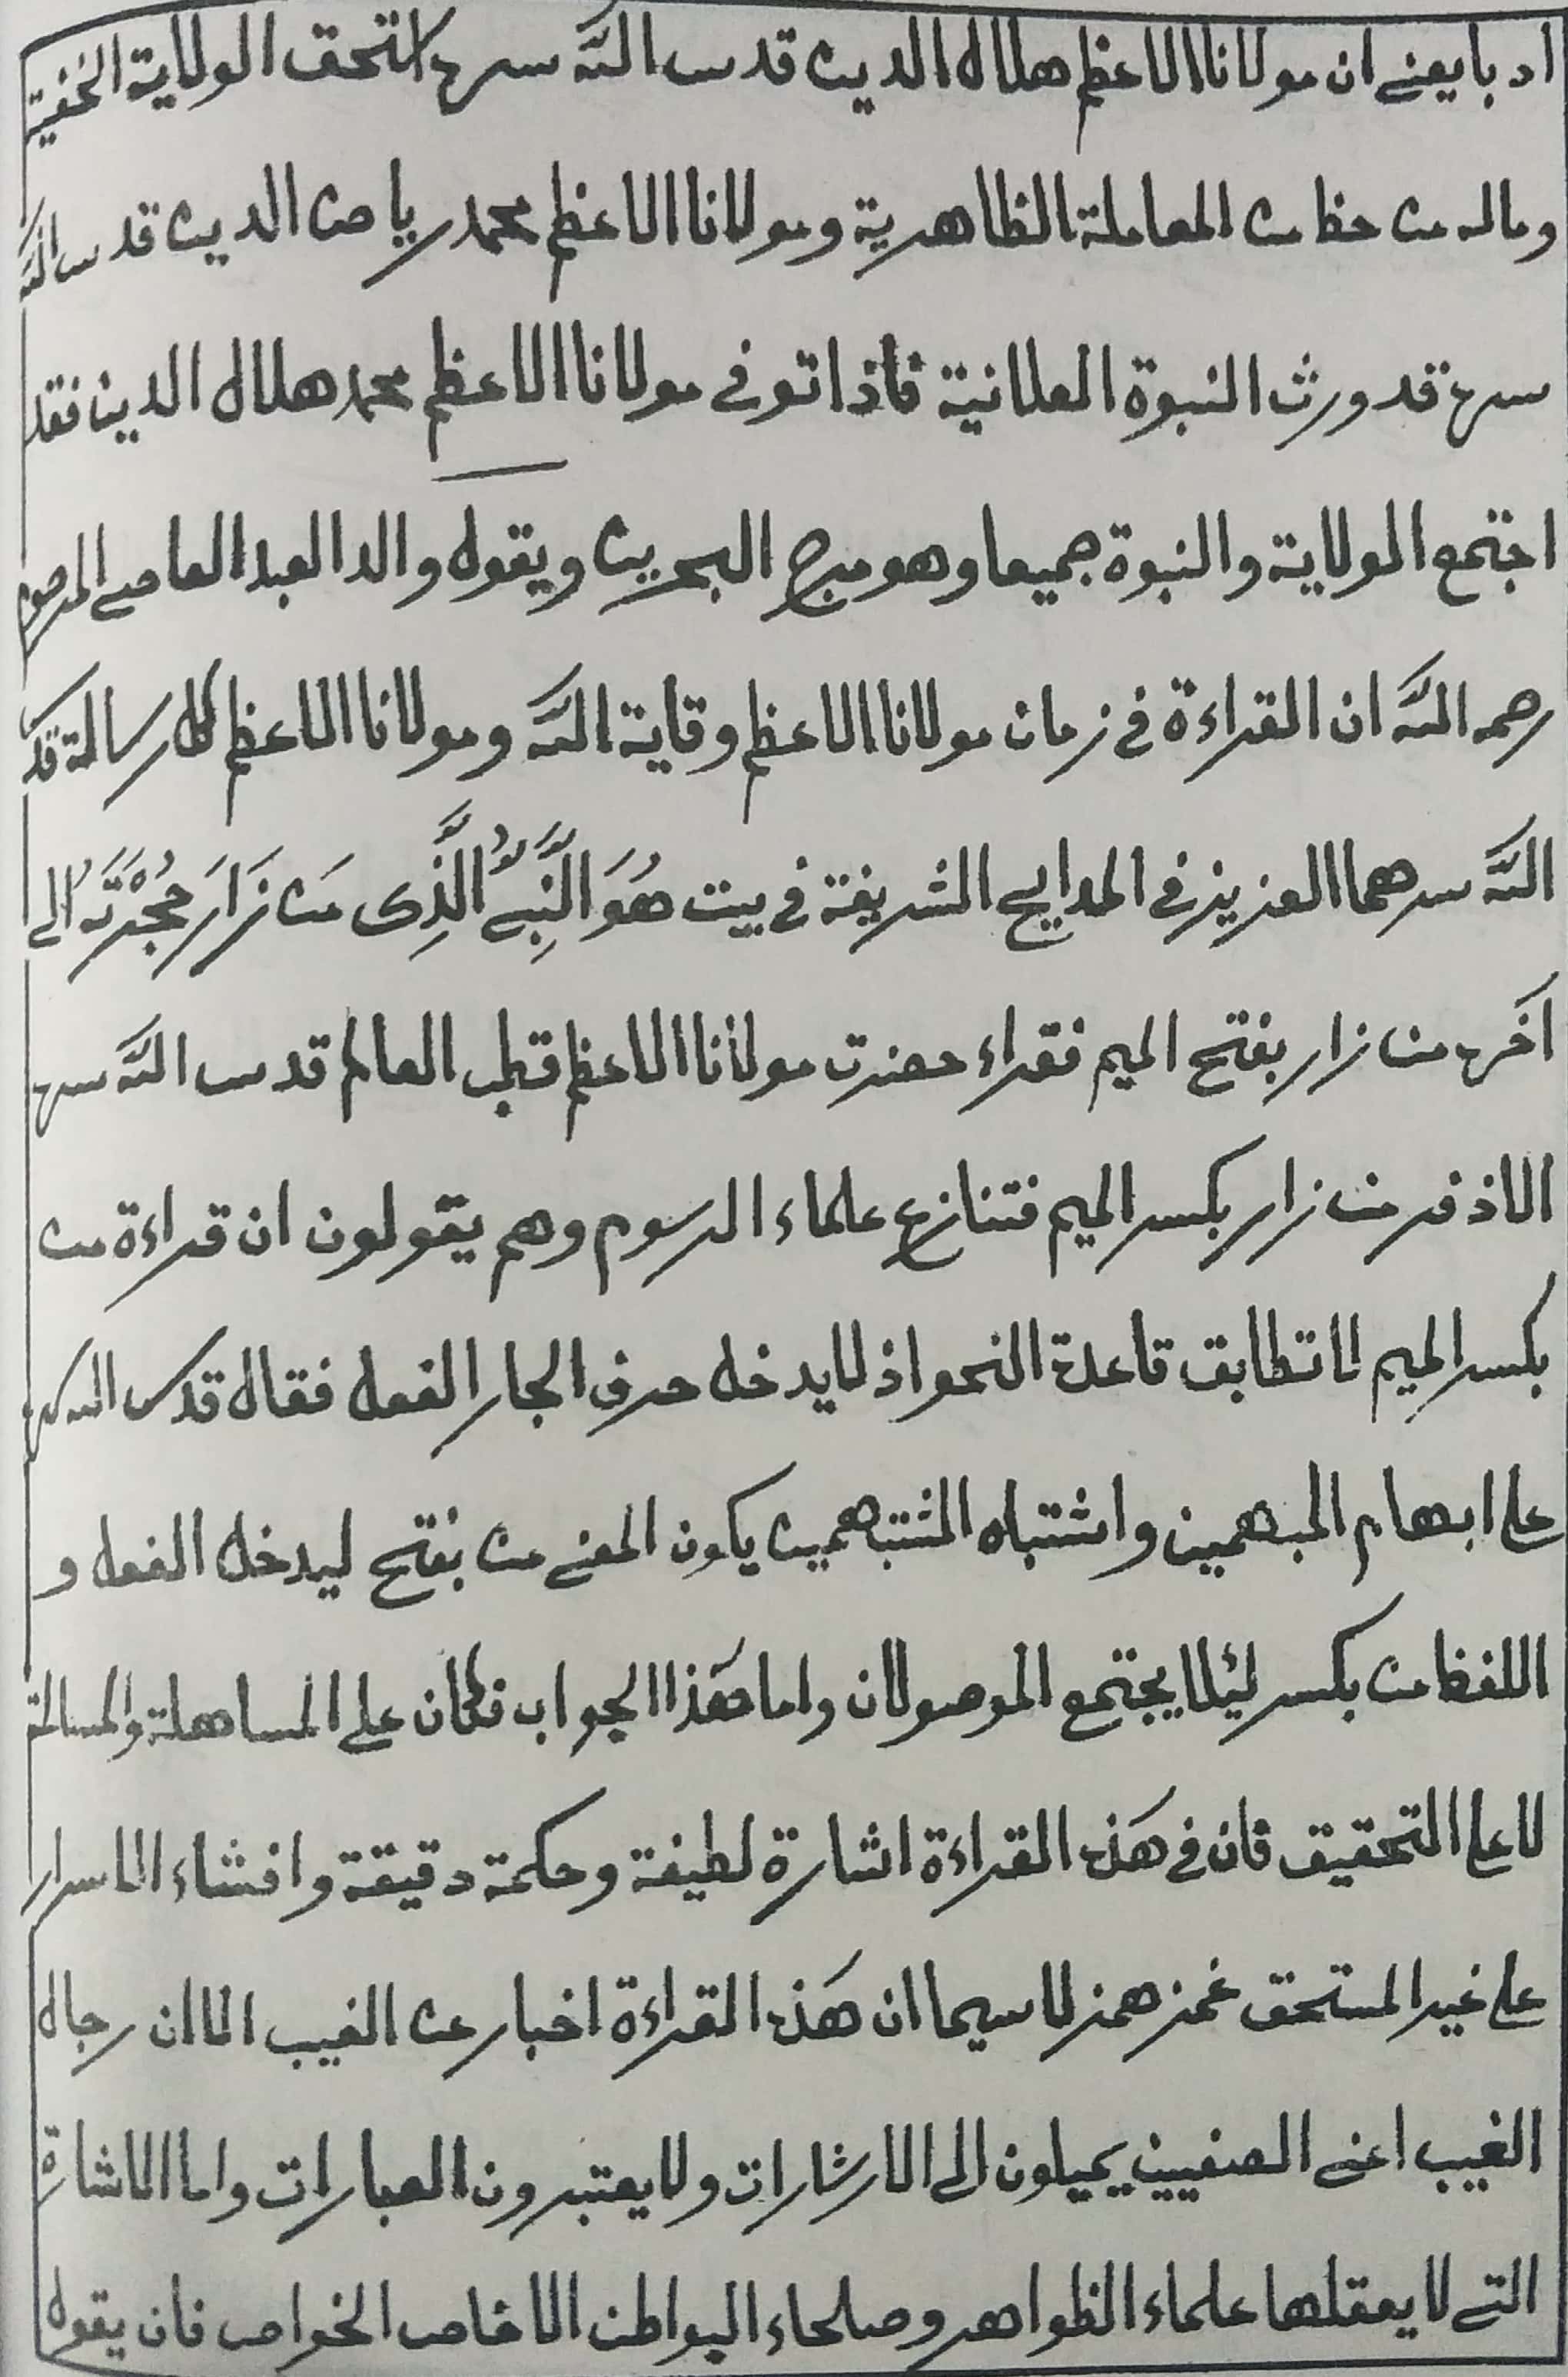 ادبا يعنى ان مولانا الاعظم هلال الدين قدس الله سره استحق الولاية الخفية
وماله من حظ من المعاملة الظاهرية ومولانا الاعظم محمد رياض الدين قدس الله
سره قد ورث النبوة العلانية فاذا توفى مولانا الاعظم محمد هلال الدين فقد
اجتمع الولاية والنبوة جميعا وهو مرج البحرين ويقول والد العبد العاصى المرحوم
رحمه الله ان القراءة فى زمان مولانا الاعظم وقاية الله ومولانا الاعظم كل رسالة قدس
الله سرهما العزيز فى المدايح الشريفة فى بيت هُوَ النَّبِىُّ الَّذِى مَن زَارَ حُجْرَتَهُ الى
آخره من زار بفتح الميم فقراء حضرت مولانا الاعظم قطب العالم قدس الله سره
الاذفر من زار بكسر الميم فتنازع علماء الرسوم وهم يقولون ان قراءة من
بكسر الميم لا تطابق قاعدة النحو اذ لا يدخل حرف الجار الفعل فقال قدس الله سره
على ابهام المبهمين واشتباه المشتبهين يكون المعنى من بفتح ليدخل الفعل و
اللفظ من بكسر ليئلا يجتمع الموصولان واما هٰذا الجواب فكان على المساهلة والمسالمة
لا على التحقيق فان فى هٰذه القراءة اشارة لطيفة وحكمة دقيقة وافشاء الاسرار
على غير المستحق غمز همز لا سيما ان هٰذه القراءة اخبار عن الغيب الا ان رجال
الغيب اعنى الصفيين يميلون الى الارشارات ولا يعتبرون العبارات واما الاشارة
التى لا يعقلها علماء الظواهر وصلحاء البواطن الا خاص الخواص فان يقول